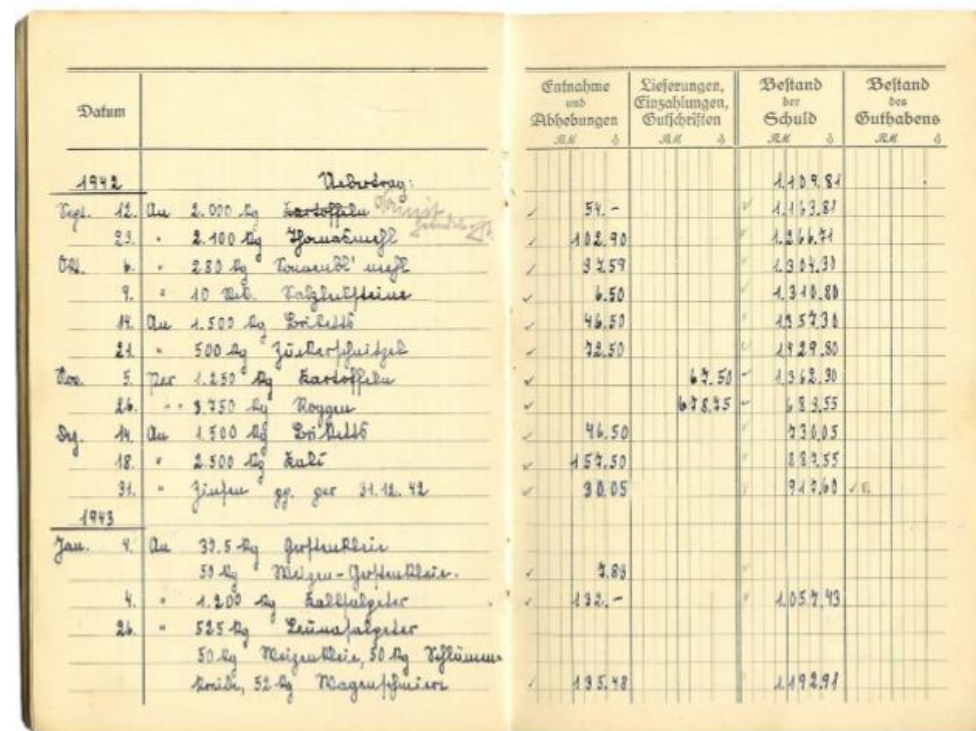 Datum Entnahme und Abhebungen Lieferungen, Einzahlungen, Gutschriften Bestand der Schuld Bestand des Guthabens
RM ₰ RM ₰ RM ₰ RM ₰
1942 Uebertrag: 1.109.81
Sept. 12. An 2.000 kg Kartoffeln 54.- 1.163.81
23. " 2.100 kg Thomasmehl 102.90 1.266.71
Okt. 6. " 280 kg Sonnenbl' mehl 37.59 1.304.30
9. " 10 Salzlecksteine 6.50 1.310.80
14. An 1.500 kg Briketts 46.50 1357.30
21. " 500 kg Zuckerschnitzel 72.50 1429.80
Nov. 5. Per 1.250 kg Kartoffeln 67.50 1.362.30
26. " 3.750 kg Roggen 678.75 683.55
Dez. 14. An 1.500 kg Briketts 46.50 730.05
18. " 2.500 kg Kali 157.50 887.55
31. " Zinsen per 31.12.42 30.05 917.60
1943
Jan. 4. An 39.5 kg Gerstenkleie
50 kg Weizen-Gerstenkleie. 7.83
4. " 1.200 kg Kalksalpeter 132.- 1.057.43
26. " 525 kg Leunasalpeter
50 kg Weizenkleie, 50 kg Schlämm-
kreide, 52 kg Wagenschmiere 135.48 1.192.91